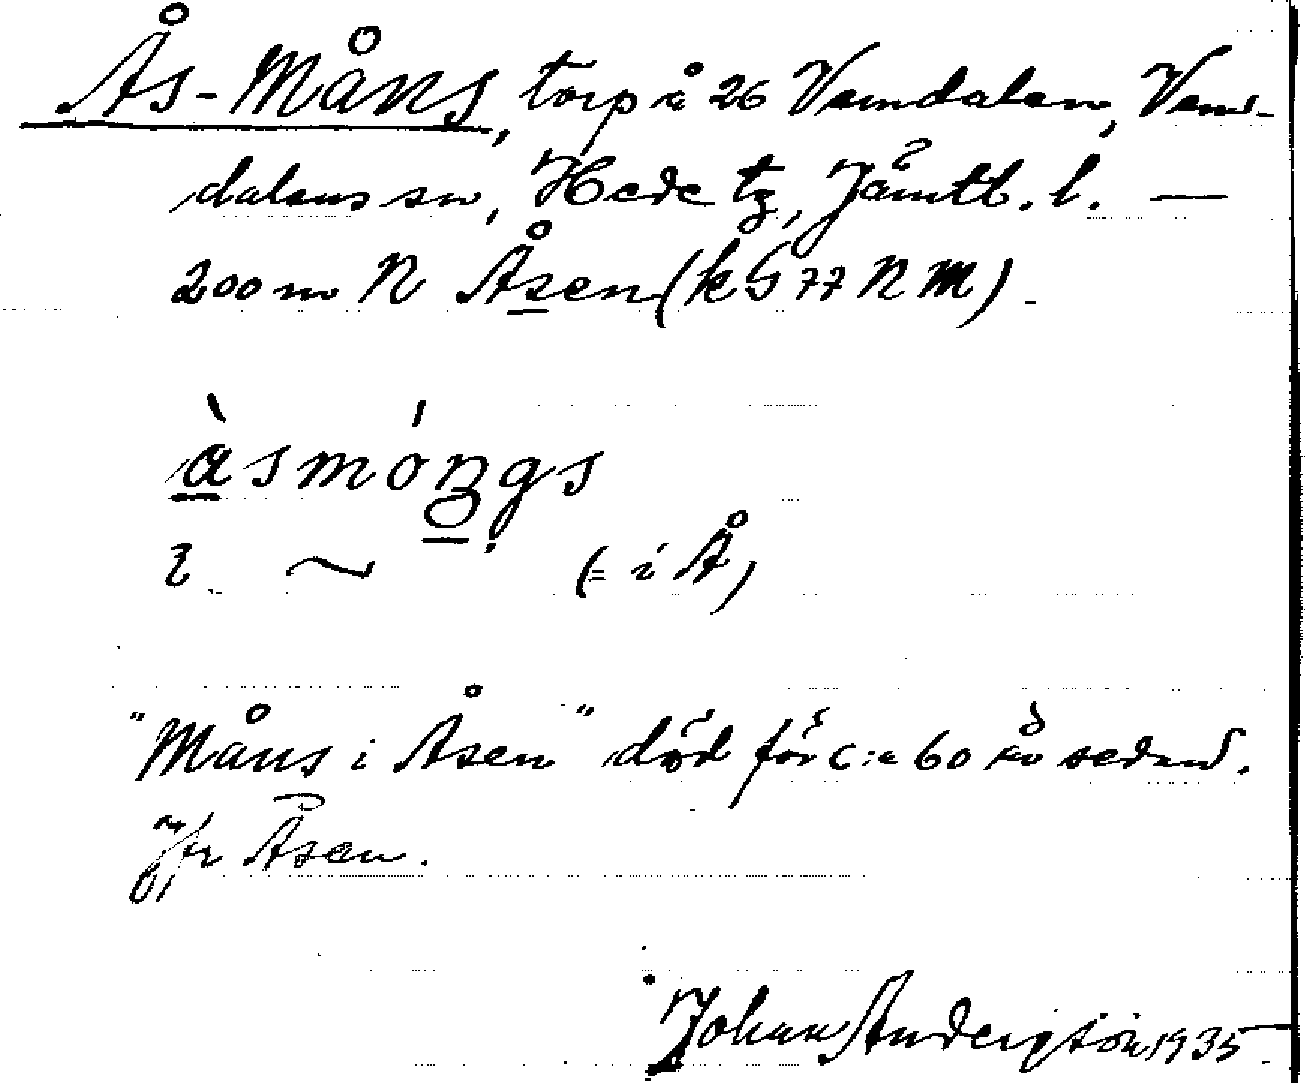 Ås-Måns, torp å 26 Vemdalen, Vem-
dalens sn, Hede tg, Jämtl. l. —
200 m N Åsen (k G 77 N M).
àsmóngs
i ~ (= i Å)
"Måns i Åsen" död för c:a 60 år sedan.
Jfr Åsen.
Johan Andersson 1935